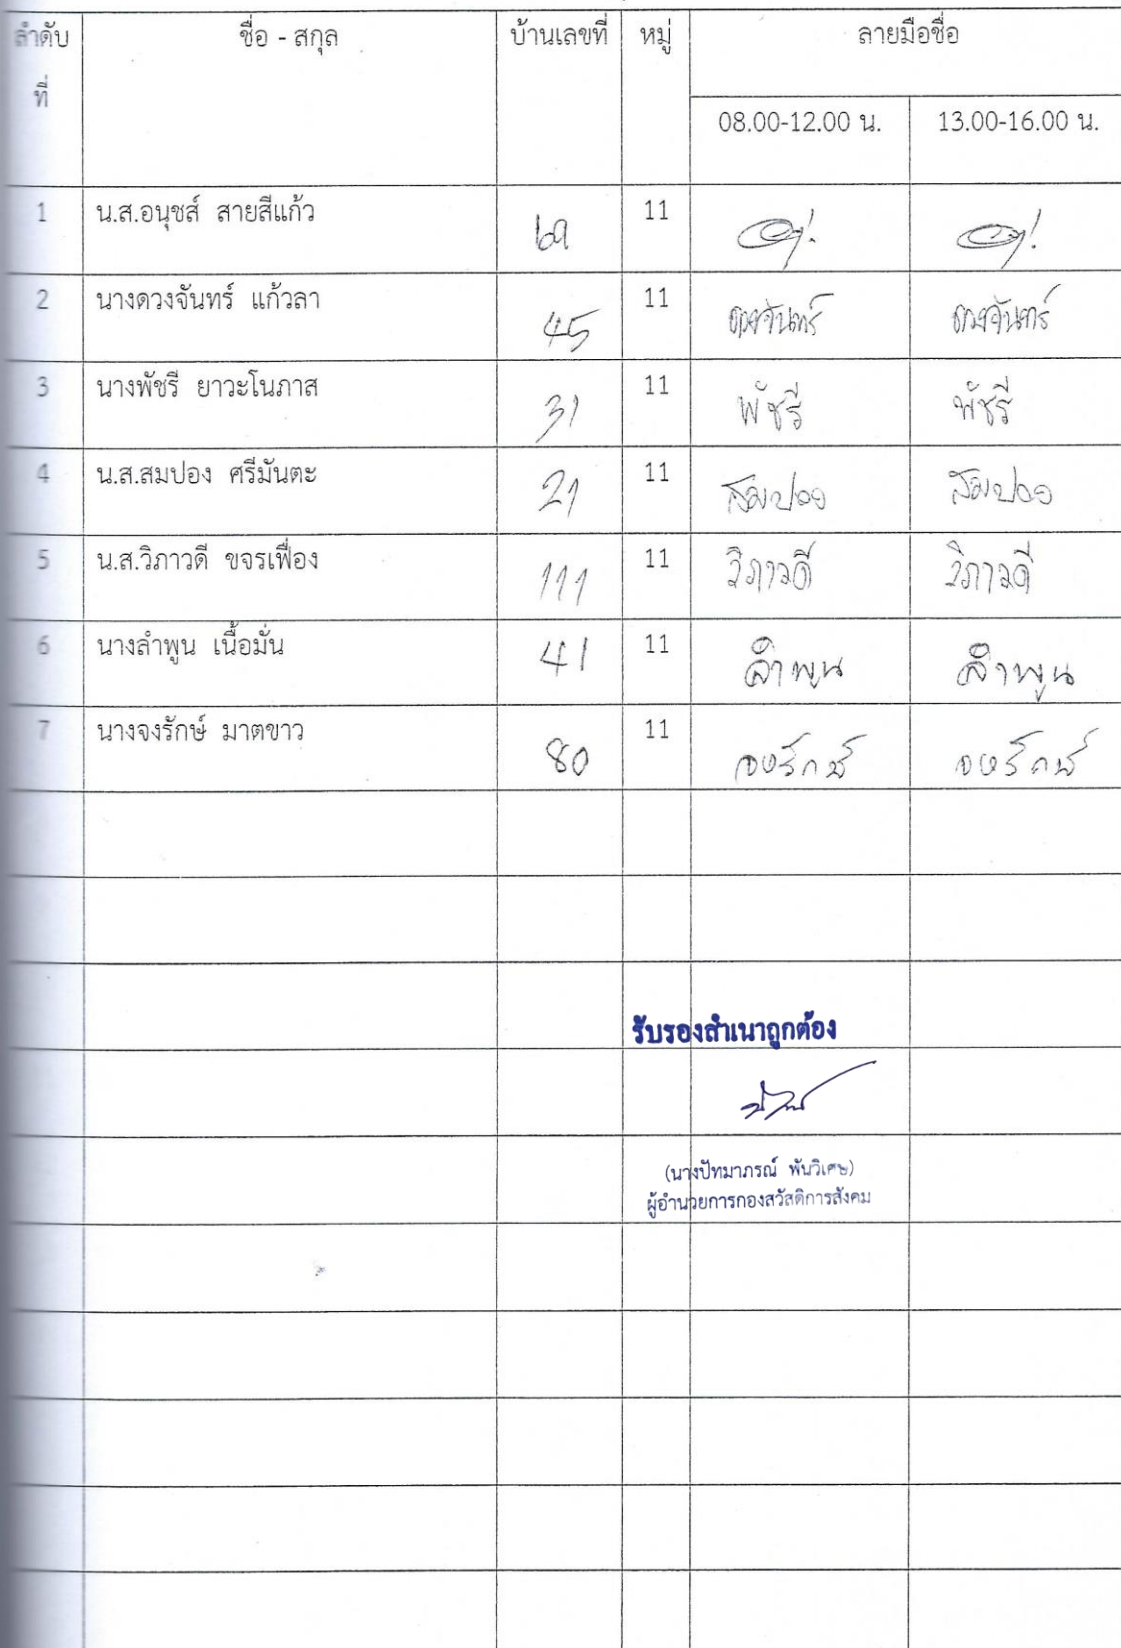 ลำดับที่ ชื่อ - สกุล บ้านเลขที่ หมู่ ลายมือชื่อ
08.00-12.00 น. 13.00-16.00 น.
1 น.ส.อนุชส์ สายสีแก้ว 69 11
2 นางดวงจันทร์ แก้วลา 45 11 ดวงจันทร์ ดวงจันทร์
3 นางพัชรี ยาวะโนภาส 31 11 พัชรี พัชรี
4 น.ส.สมปอง ศรีมันตะ 21 11 สมปอง สมปอง
5 น.ส.วิภาวดี ขจรเฟื่อง 111 11 วิภาวดี วิภาวดี
6 นางลำพูน เนื้อมั่น 41 11 ลำพูน ลำพูน
7 นางจงรักษ์ มาตขาว 80 11 จงรักษ์ จงรักษ์
รับรองสำเนาถูกต้อง
(นางปัทมาภรณ์ พันวิเศษ)
ผู้อำนวยการกองสวัสดิการสังคม